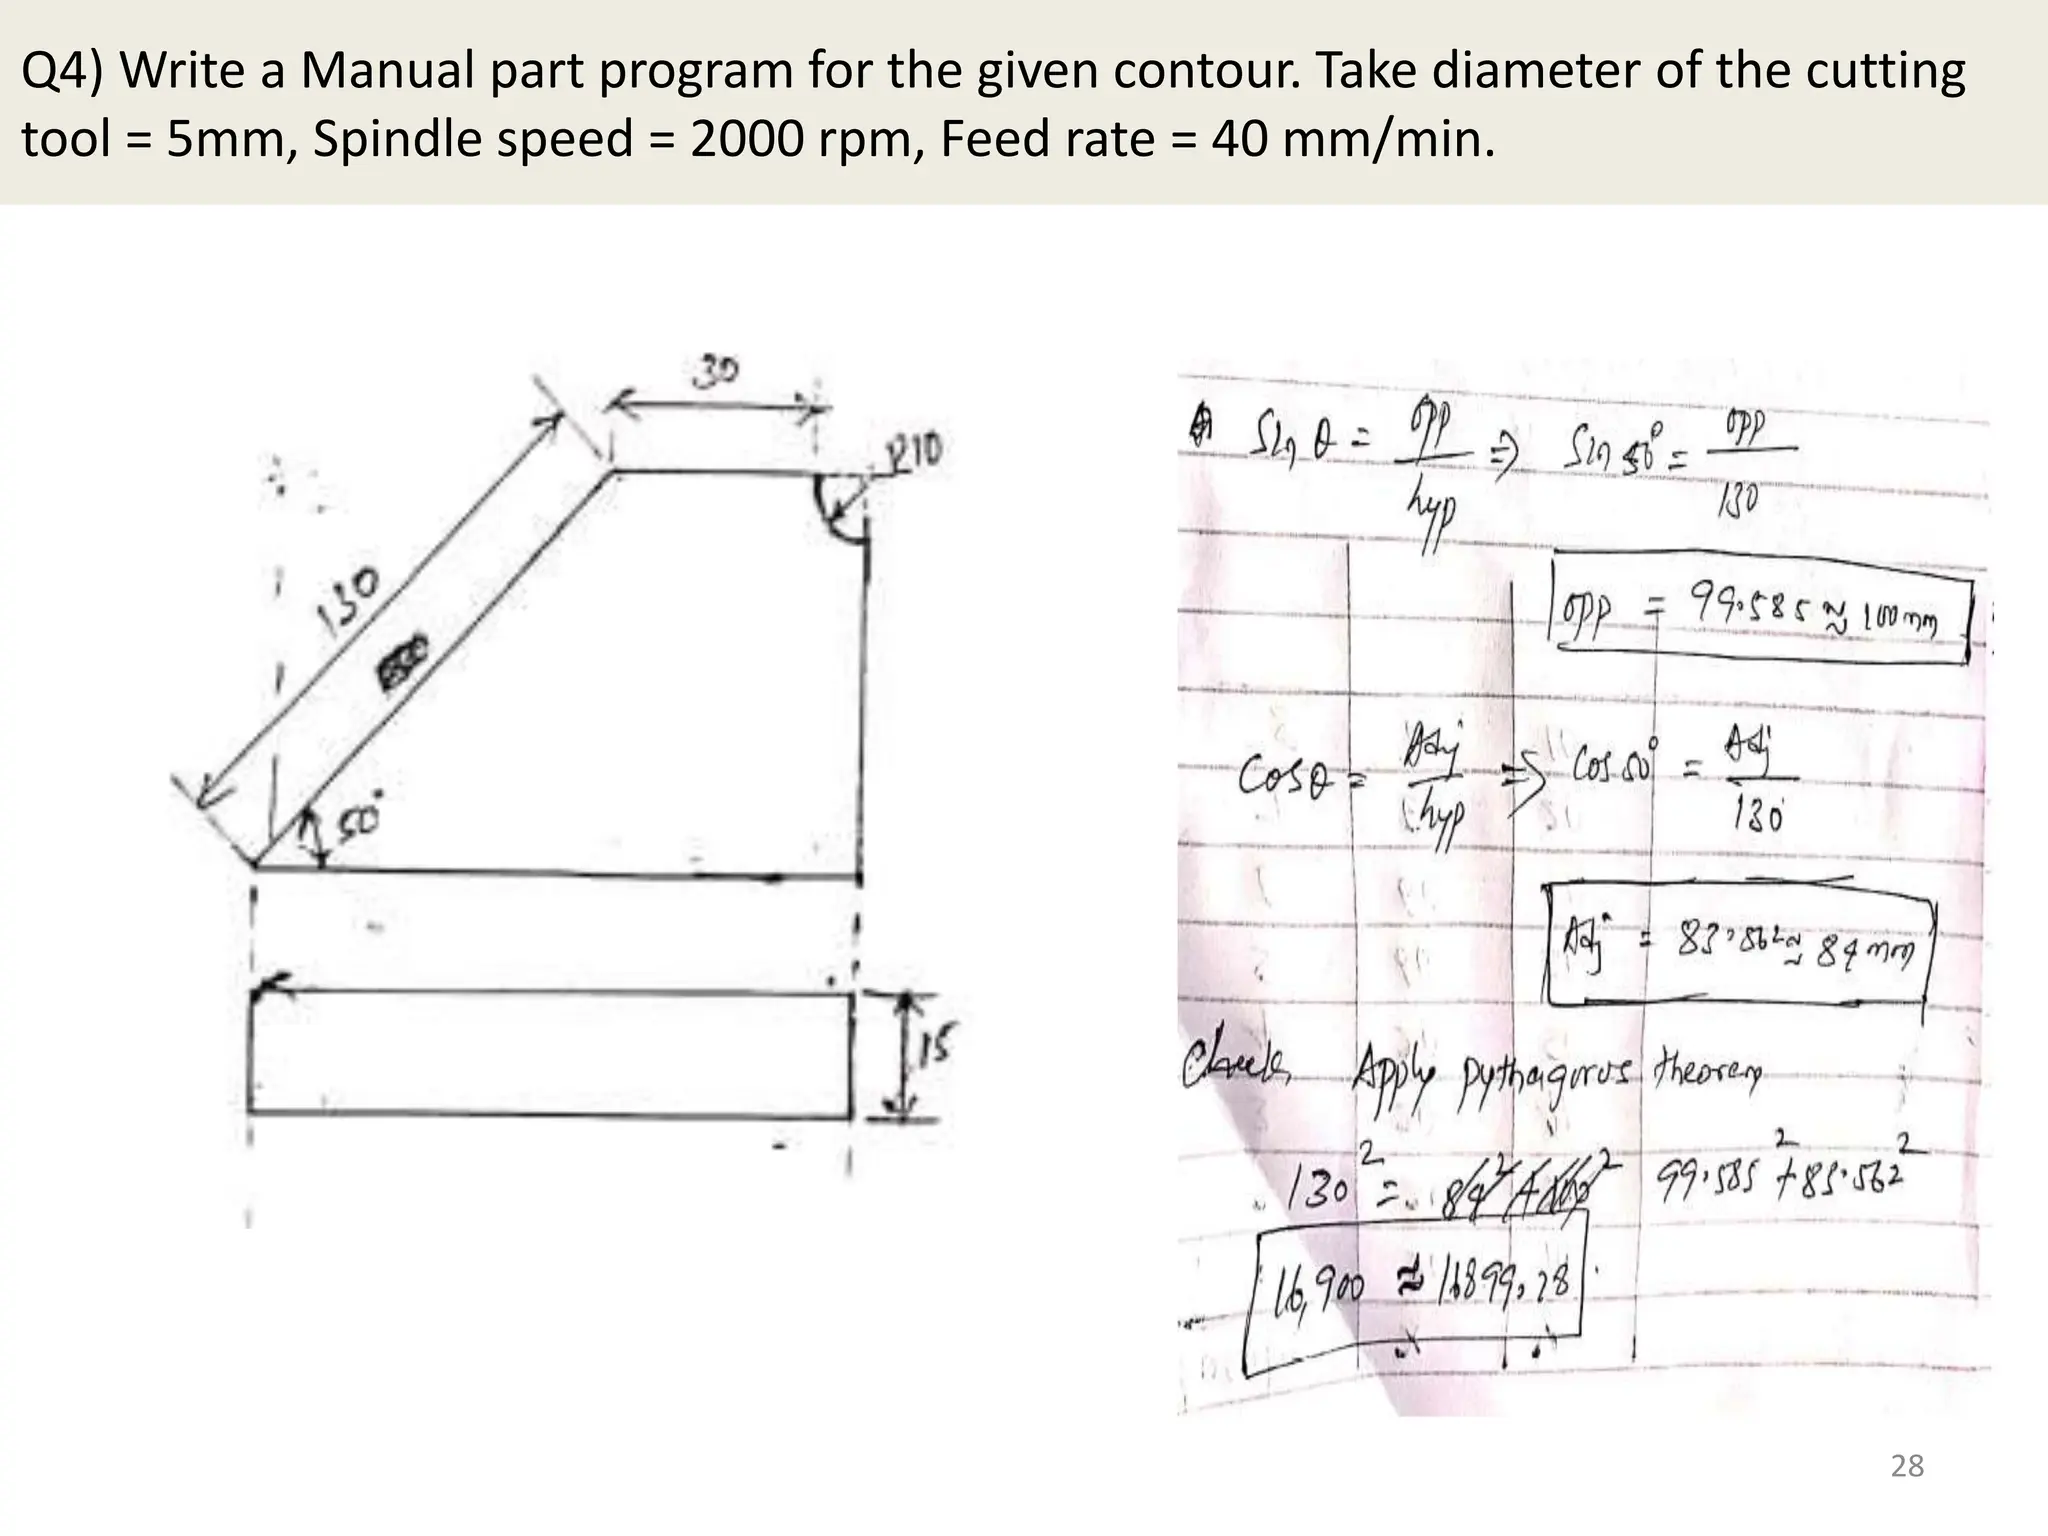 Q4) Write a Manual part program for the given contour. Take diameter of the cutting
tool = 5mm, Spindle speed = 2000 rpm, Feed rate = 40 mm/min.
30
R10
130
50°
15
Sin θ = opp/hyp ⇒ Sin 50° = opp/130
opp = 99.585 ≈ 100mm
Cosθ = Adj/hyp ⇒ Cos 50° = Adj/130
Adj = 83.562 ≈ 84mm
Check Apply pythagorus theorem
130² = 99.585² + 83.562²
16,900 ≈ 16899.28
28